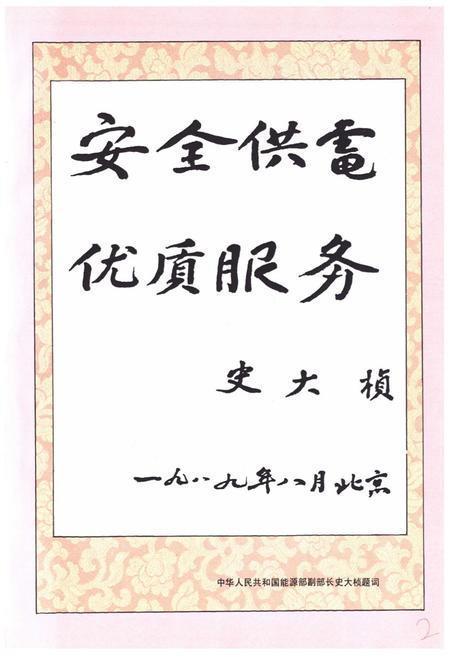 安全供電
优质服务
史大桢
一九八九年八月北京
中华人民共和国能源部副部长史大桢题词
2